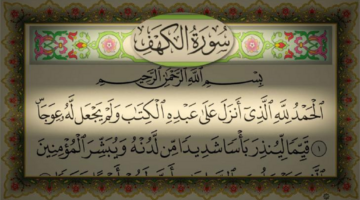 سُورَةُ الكَهْفِ
بِسْمِ اللَّهِ الرَّحْمَٰنِ الرَّحِيمِ
الْحَمْدُ لِلَّهِ الَّذِي أَنزَلَ عَلَىٰ عَبْدِهِ الْكِتَٰبَ وَلَمْ يَجْعَل لَّهُ عِوَجَاۜ
١ قَيِّمًا لِّيُنذِرَ بَأْسًا شَدِيدًا مِّن لَّدُنْهُ وَيُبَشِّرَ الْمُؤْمِنِينَ